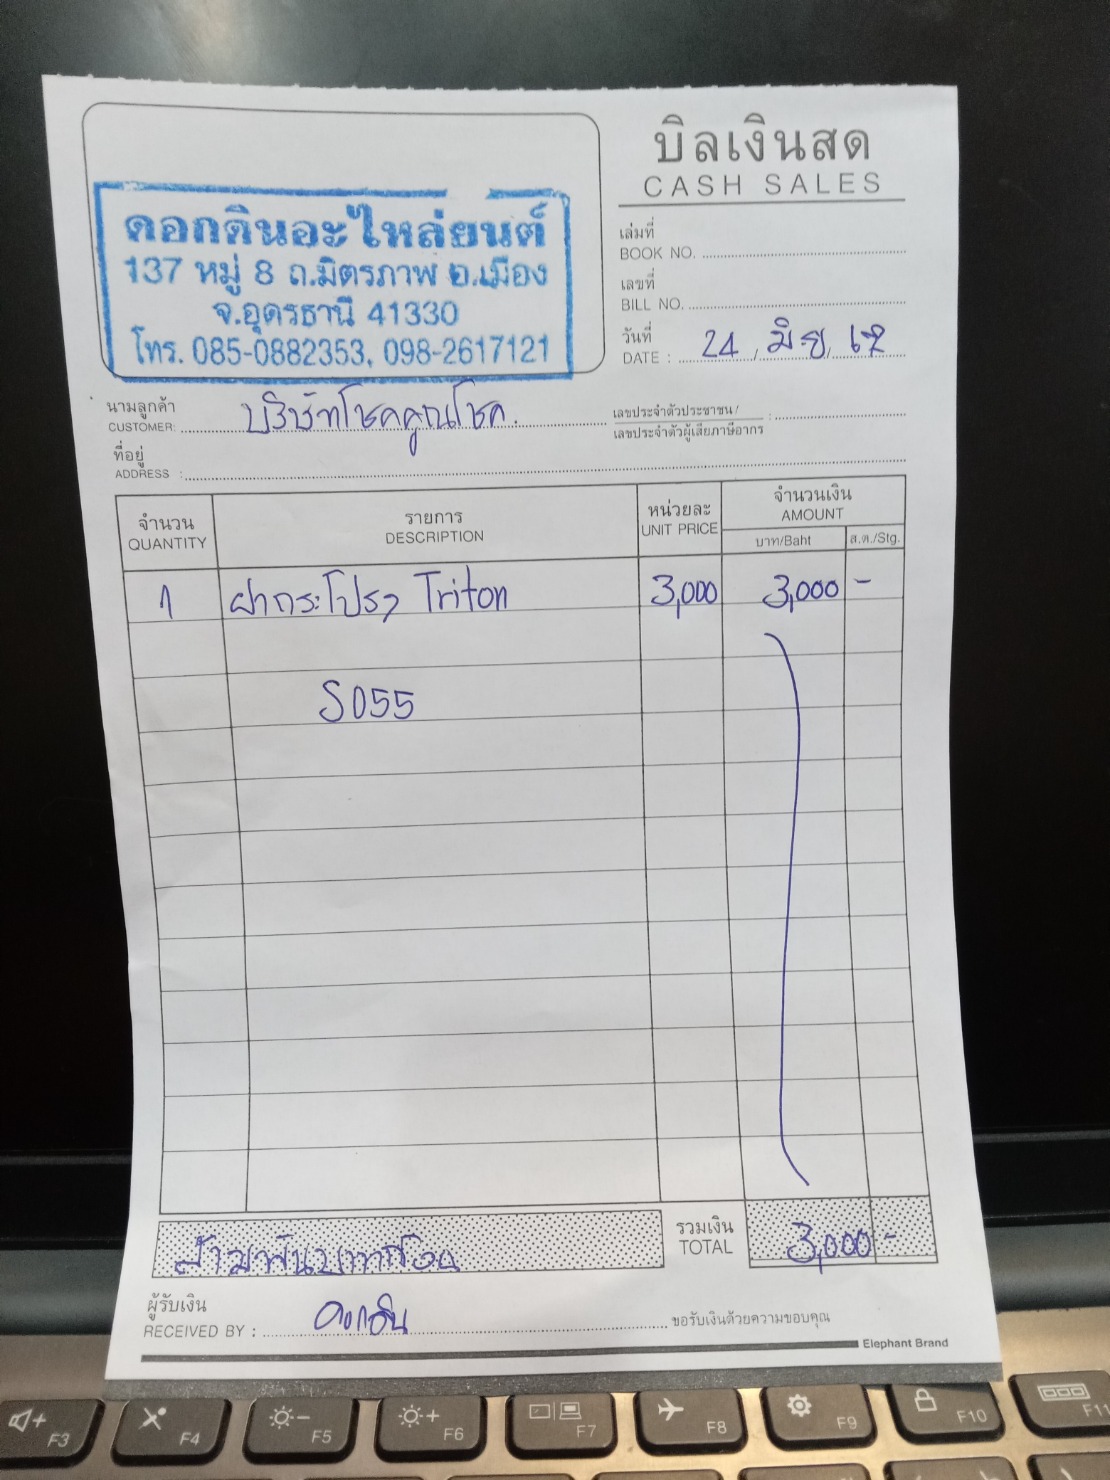 บิลเงินสด
CASH SALES
ดอกดินอะไหล่ยนต์
137 หมู่ 8 ถ.มิตรภาพ อ.เมือง
จ.อุดรธานี 41330
โทร. 085-0882353, 098-2617121
เล่มที่
BOOK NO.
เลขที่
BILL NO.
วันที่
DATE : 24 / มิย / 67
นามลูกค้า
CUSTOMER: บริษัทโชคคูณโชค
เลขประจำตัวประชาชน /
เลขประจำตัวผู้เสียภาษีอากร :
ที่อยู่
ADDRESS :
จำนวน รายการ หน่วยละ จำนวนเงิน
QUANTITY DESCRIPTION UNIT PRICE AMOUNT
บาท/Baht ส.ต./Stg.
1 ฝากระโปรง Triton 3,000 3,000 -
S055
รวมเงิน
TOTAL
สามพันบาทถ้วน 3,000 -
ผู้รับเงิน
RECEIVED BY : ดอกดิน ขอรับเงินด้วยความขอบคุณ
Elephant Brand
F3 F4 F5 F6 F7 F8 F9 F10 F11